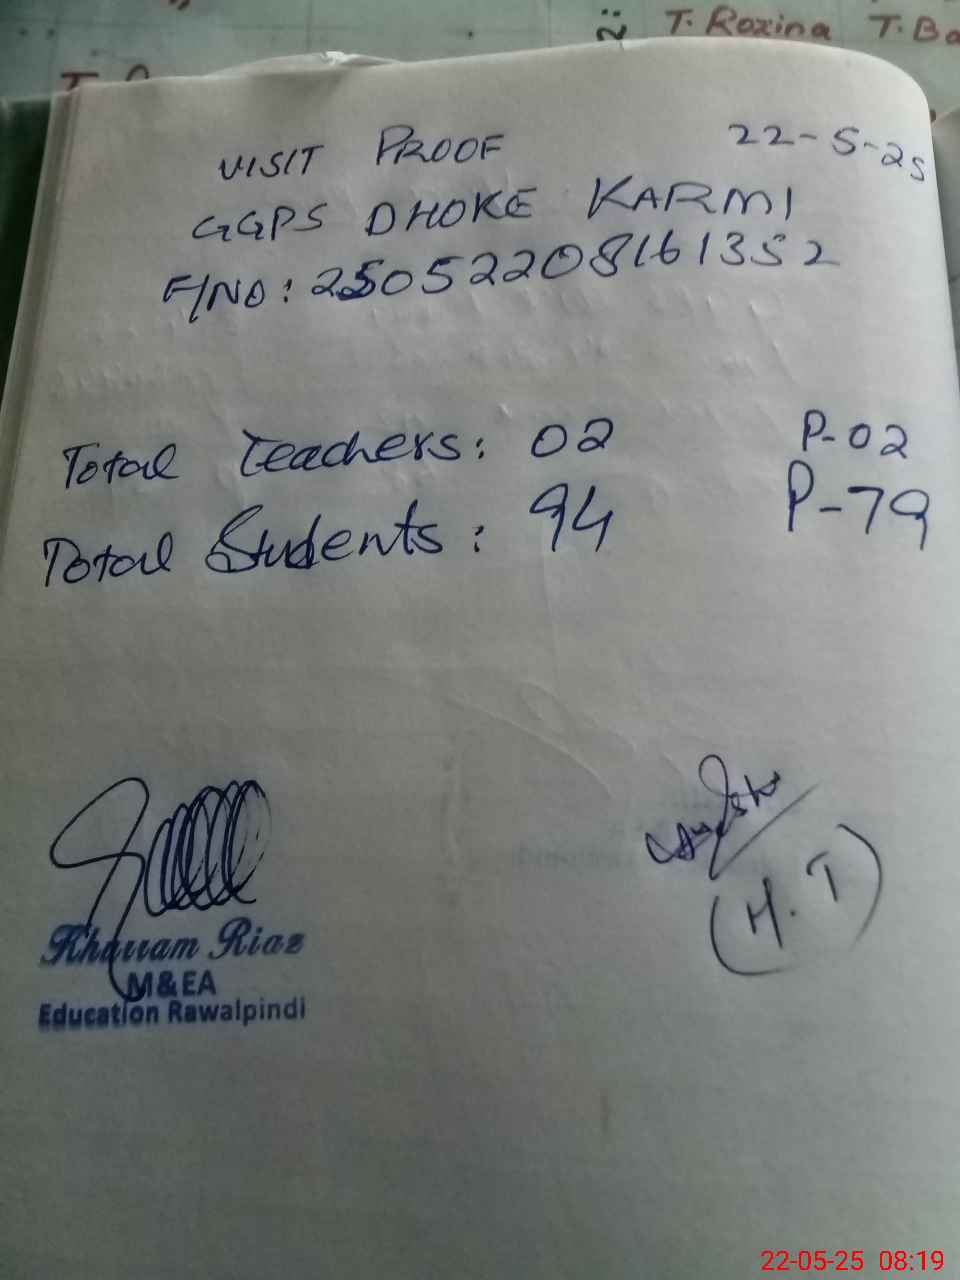 T. Roxina T. Ba
VISIT PROOF 22-5-25
GGPS DHOKE KARMI
F/NO: 25052208161352
Total Teachers: 02 P-02
Total Students: 94 P-79
Khurram Riaz
M&EA
Education Rawalpindi
(H.T)
22-05-25 08:19